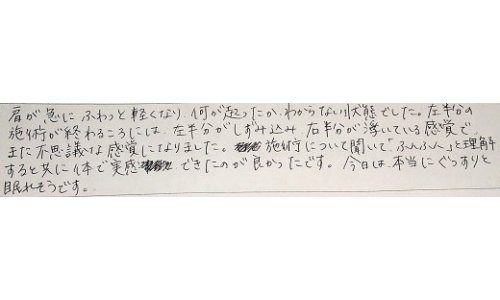 肩が急に ふわっと軽くなり、何が起ったか、わからない状態でした。左半分の
施術が終わるころには、左半分がしずみ込み、右半分が浮いている感覚で、
また不思議な感覚になりました。施術について聞いて「ふんふん」と理解
すると共に体で実感 できたのが良かったです。今日は本当にぐっすりと
眠れそうです。